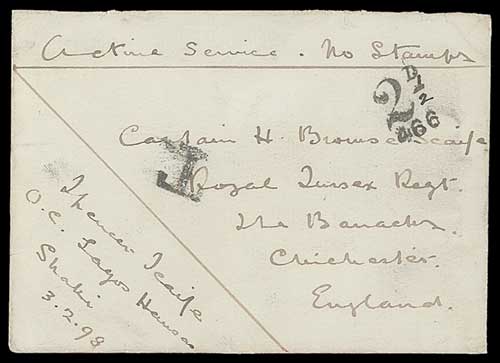 Active Service. No Stamps
2D 1/2
466
Captain H. Browse Scaife
T
Royal Sussex Regt.
The Barracks.
Chichester.
England.
Spencer Scaife
O.C. Lagos Hausas
Shaki
3.2.98